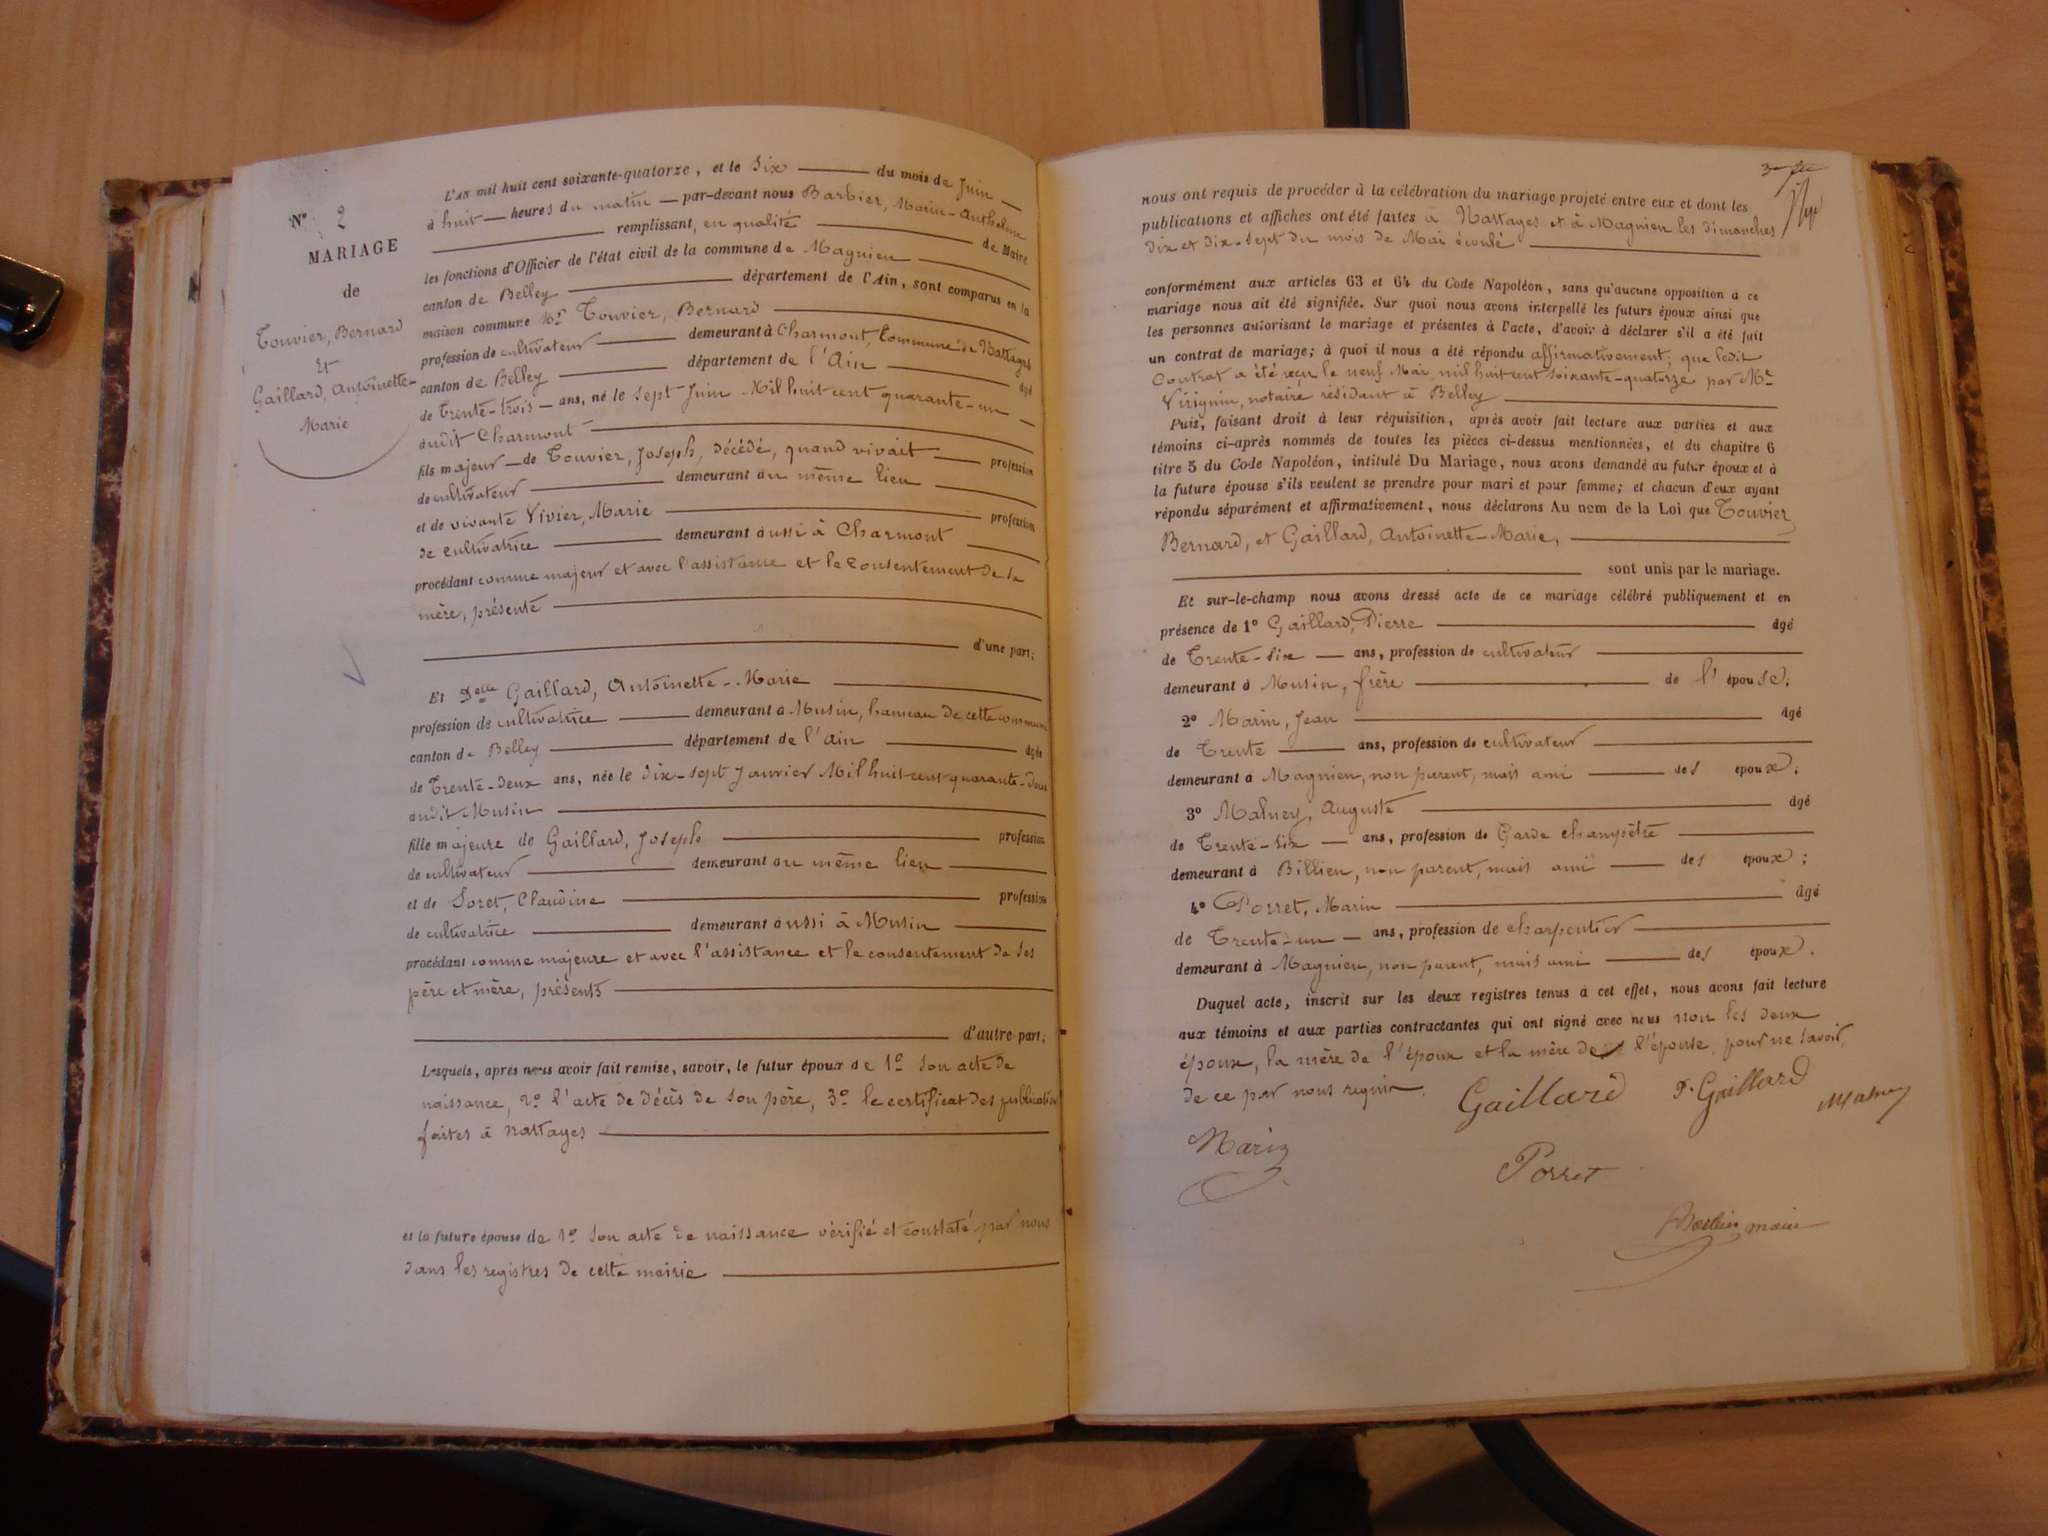 N° 2
MARIAGE
de
Touvier, Bernard
Et
Gaillard, Antoinette-
Marie
L'AN mil huit cent soixante-quatorze, et le Six du mois de Juin
à huit heures du matin par-devant nous Barbier, Marin-Anthelme
remplissant, en qualité de Maire
les fonctions d'Officier de l'état civil de la commune de Magnieu
canton de Belley département de l'Ain, sont comparus en la
maison commune Mr Touvier, Bernard
profession de cultivateur demeurant à Charmont, Commune de Nattages
canton de Belley département de l'Ain âgé
de Trente-trois ans, né le sept Juin Mil huit cent quarante-un
audit Charmont
fils majeur de Touvier, Joseph, décédé, quand vivait profession
de cultivateur demeurant au même lieu
et de vivante Vivier, Marie profession
de cultivatrice demeurant aussi à Charmont
procédant comme majeur et avec l'assistance et le consentement de sa
mère, présente
d'une part;
Et Delle Gaillard, Antoinette-Marie
profession de cultivatrice demeurant à Musin, hameau de cette commune
canton de Belley département de l'Ain âgée
de Trente-deux ans, née le dix-sept Janvier Mil huit cent quarante-deux
audit Musin
fille majeure de Gaillard, Joseph profession
de cultivateur demeurant au même lieu
et de Soret, Claudine profession
de cultivatrice demeurant aussi à Musin
procédant comme majeure et avec l'assistance et le consentement de ses
père et mère, présents
d'autre part;
Lesquels, après nous avoir fait remise, savoir, le futur époux de 1º Son acte de
naissance, 2º l'acte de décès de son père, 3º le certificat des publications
faites à Nattages
et la future épouse de 1º Son acte de naissance vérifié et constaté par nous
dans les registres de cette mairie
nous ont requis de procéder à la célébration du mariage projeté entre eux et dont les
publications et affiches ont été faites à Nattages et à Magnieu les dimanches
dix et dix-sept du mois de Mai écoulé
conformément aux articles 63 et 64 du Code Napoléon, sans qu'aucune opposition à ce
mariage nous ait été signifiée. Sur quoi nous avons interpellé les futurs époux ainsi que
les personnes autorisant le mariage et présentes à l'acte, d'avoir à déclarer s'il a été fait
un contrat de mariage; à quoi il nous a été répondu affirmativement; que ledit
Contrat a été reçu le neuf Mai mil huit cent soixante-quatorze par Me
Virignin, notaire résidant à Belley
Puis, faisant droit à leur réquisition, après avoir fait lecture aux parties et aux
témoins ci-après nommés de toutes les pièces ci-dessus mentionnées, et du chapitre 6
titre 5 du Code Napoléon, intitulé Du Mariage, nous avons demandé au futur époux et à
la future épouse s'ils veulent se prendre pour mari et pour femme; et chacun d'eux ayant
répondu séparément et affirmativement, nous déclarons Au nom de la Loi que Touvier
Bernard, et Gaillard, Antoinette-Marie,
sont unis par le mariage.
Et sur-le-champ nous avons dressé acte de ce mariage célébré publiquement et en
présence de 1º Gaillard, Pierre âgé
de Trente-six ans, profession de cultivateur
demeurant à Musin, frère de l'épouse;
2º Marin, Jean âgé
de Trente ans, profession de cultivateur
demeurant à Magnieu, non parent, mais ami des époux;
3º Matney, Auguste âgé
de Trente-six ans, profession de Garde champêtre
demeurant à Billieu, non parent, mais ami des époux;
4º Porret, Marin âgé
de Trente-un ans, profession de charpentier
demeurant à Magnieu, non parent, mais ami des époux.
Duquel acte, inscrit sur les deux registres tenus à cet effet, nous avons fait lecture
aux témoins et aux parties contractantes qui ont signé avec nous non les deux
époux, la mère de l'époux et la mère de l'épouse, pour ne savoir,
de ce par nous requis.
Gaillard P. Gaillard
Marin
Porret
maire